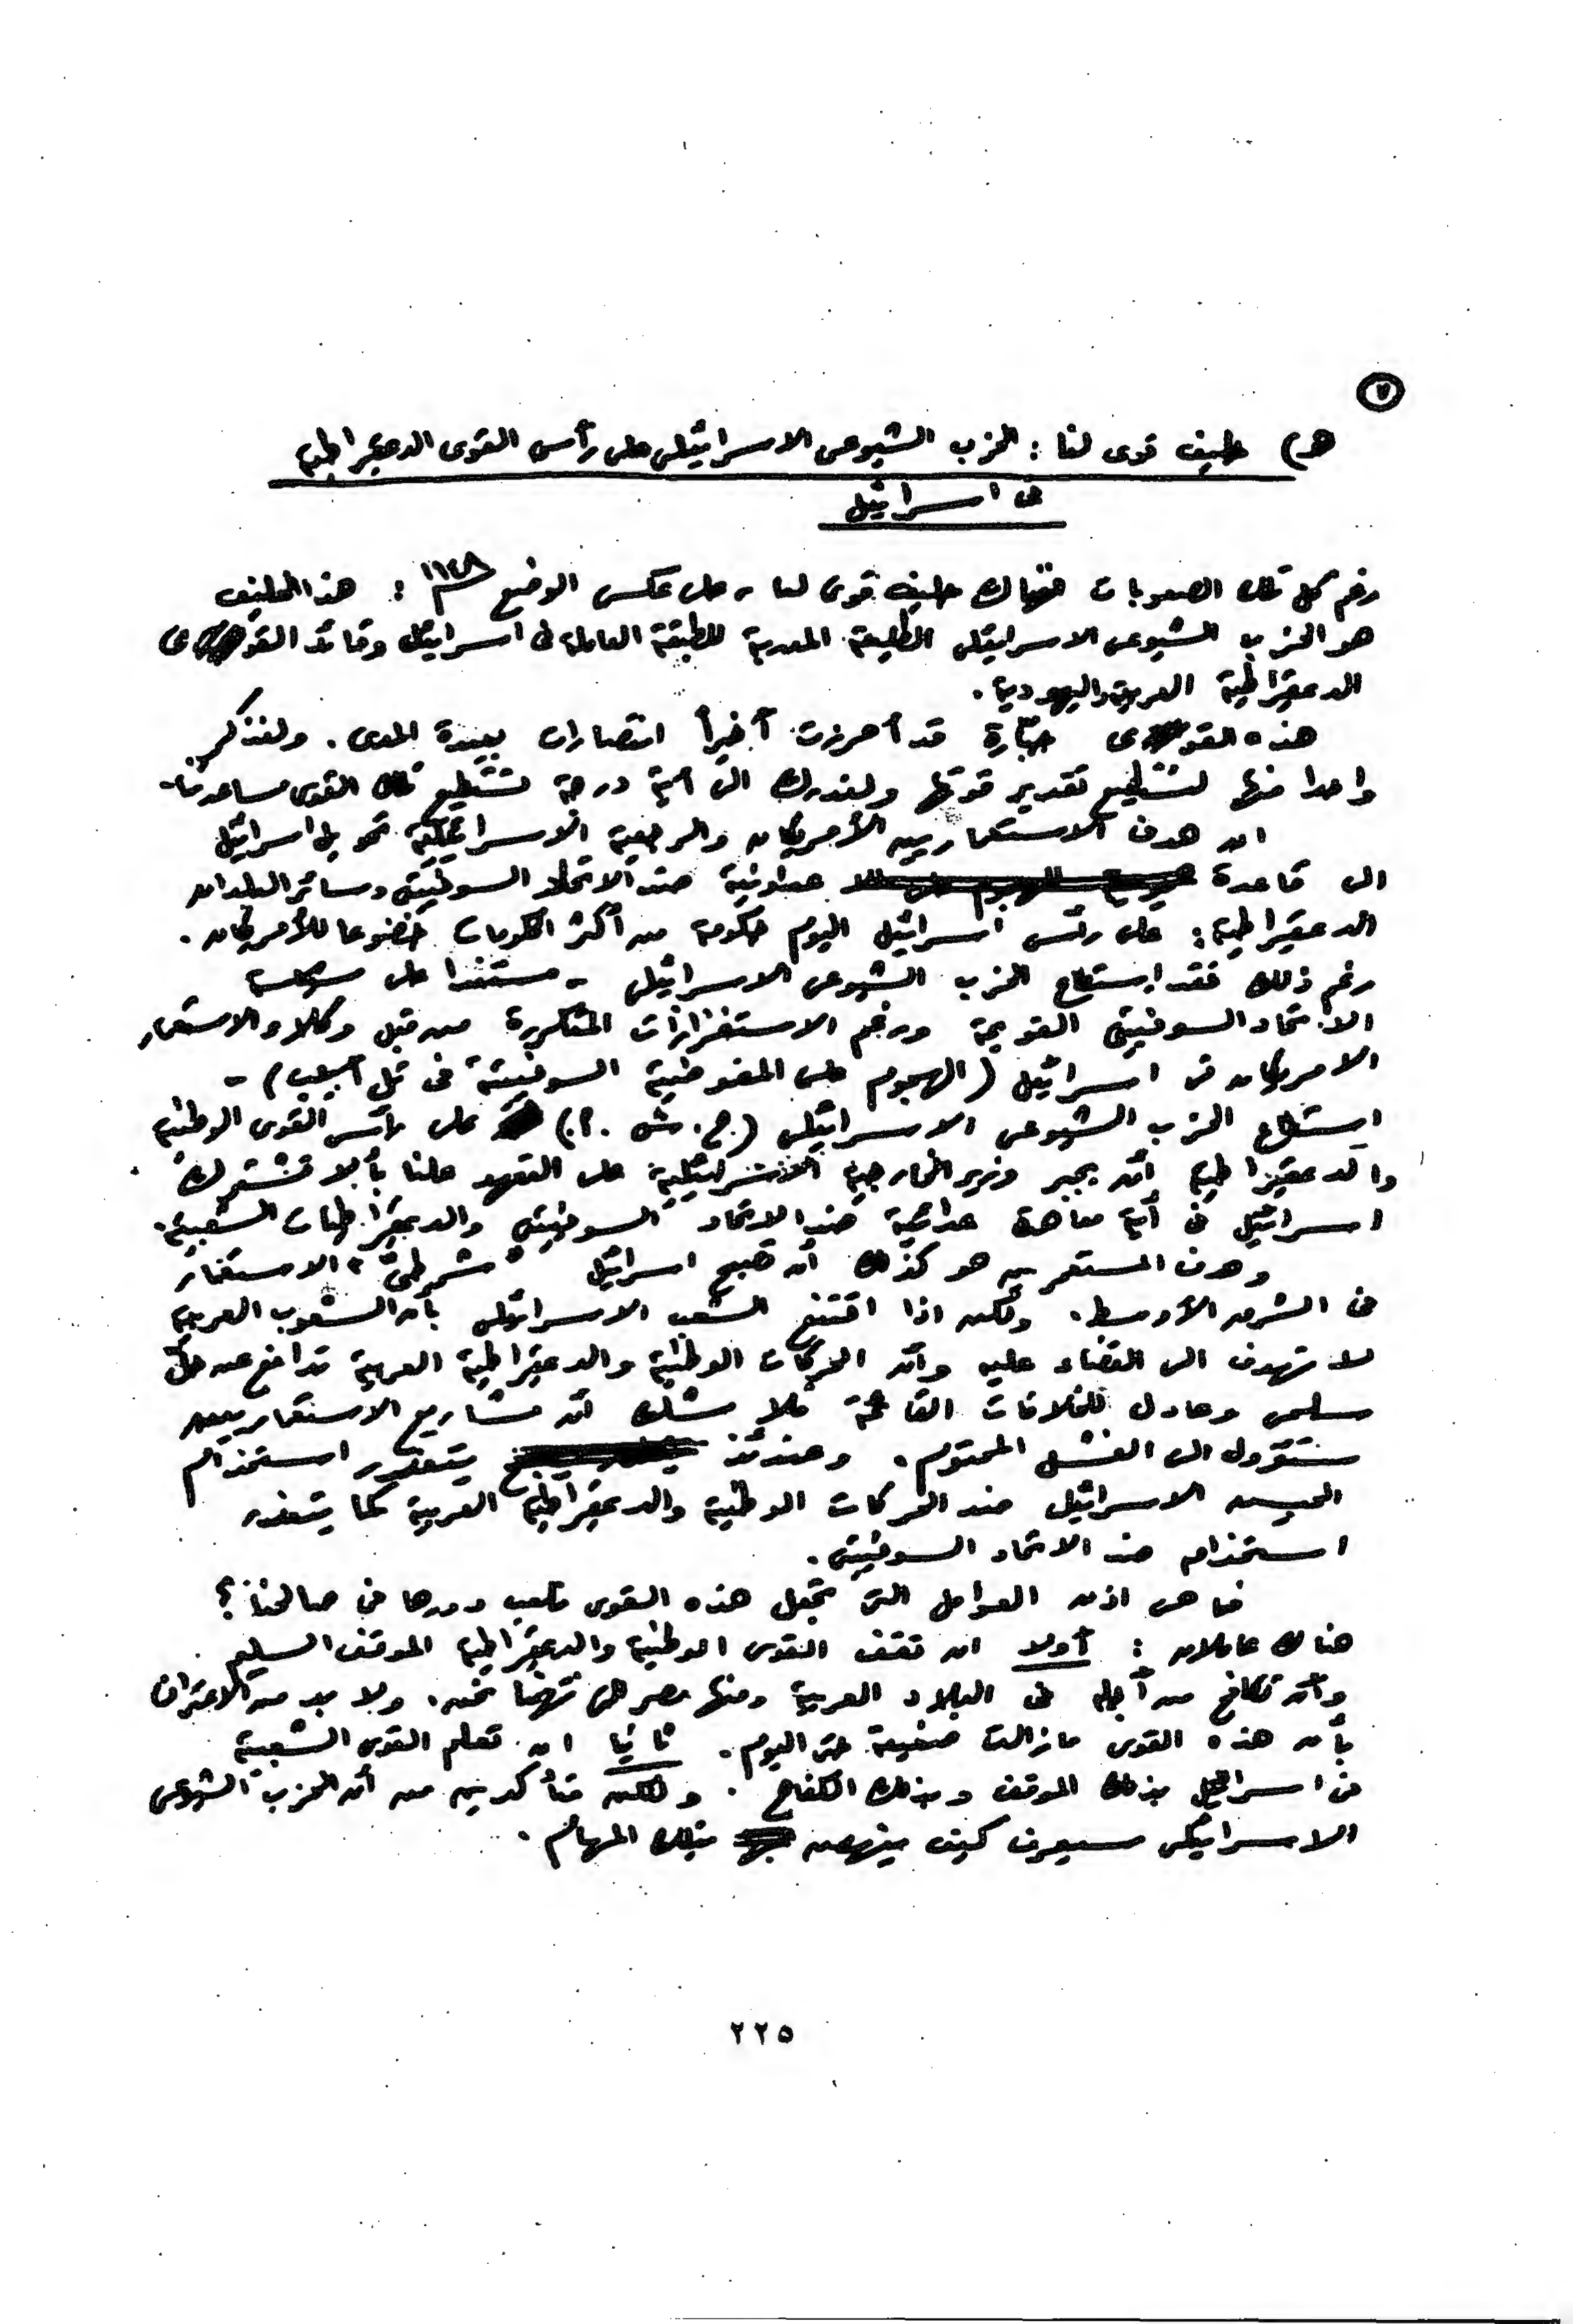 ٧
هـ) حليف قوى لنا : الحزب الشيوعى الاسرائيلى على رأس القوى الديمقراطية
فى اسرائيل
رغم كل تلك الصعوبات فهناك حليف قوى لنا - على عكس الوضع ١٩٤٨ : هذا الحليف
هو الحزب الشيوعى الاسرائيلى الطليعة المدربة للطبقة العاملة فى اسرائيل وقائد القوى
الديمقراطية العربية واليهودية .
هذه القوى جبّارة قد أحرزت أخيرأ انتصارات بعيدة المدى . ولنذكر
واحدا منها لنستطيع تقدير قوتها ولندرك الى أية درجة تستطيع تلك القوى مساعدتنا -
ان هدف الاستعماريين الأمريكان والرجعية الاسرائيلية تحويل اسرائيل
الى قاعدة عدوانية ضد الاتحاد السوفيتى وسائر البلدان
الديمقراطية : على رئس اسرائيل اليوم حكومة من أكثر الحكومات خضوعا للأمريكان .
رغم ذلك فقد استطاع الحزب الشيوعى الاسرائيلى - مستندا على سياسة
الاتحاد السوفيتى القويمة ورغم الاستفزازات المتكررة من قبل وكلاء الاستعمار
الامريكان فى اسرائيل (الهجوم على المفوضية السوفيتية فى تل أبيب) -
استطاع الحزب الشيوعى الاسرائيلى (ح . ش . ا .) على رأس القوى الوطنية
والديمقراطية أن يجبر وزير الخارجية الاسرائيلية على التعهد علنا بألا تشترك
اسرائيل فى أية معاهدة عدائية ضد الاتحاد السوفيتى والديمقراطيات الشعبية .
وهدف المستعمرين هو كذلك أن تصبح اسرائيل "شرطىّ" الاستعمار
فى الشرق الأوسط . ولكن اذا اقتنع الشعب الاسرائيلى بأن الشعوب العربية
لا تهدف الى القضاء عليه وأن الحركات الوطنية والديمقراطية العربية تدافع عن حلّ
سلمى وعادل للخلافات القائمة فلا شك أن مشاريع الاستعماريين
ستؤول الى الفشل المحتوم . وعندئذ يتعذر استخدام
الجيش الاسرائيلى ضد الحركات الوطنية والديمقراطية العربية كما يتعذر
استخدامه ضد الاتحاد السوفيتى .
فما هى اذن العوامل التى تجعل هذه القوى تلعب دورها فى صالحنا ؟
هناك عاملان : أولا ان تقف القوى الوطنية والديمقراطية الموقف السليم
وأن تكافح من أجله فى البلاد العربية ومنها مصر التى تهمنا نحن . ولا بد من الاعتراف
بأن هذه القوى مازالت ضعيفة حتى اليوم . ثانيا ان تعلم القوى الشعبية
فى اسرائيل بذلك الموقف وبذلك الكفاح . ولكن متأكدين من أن الحزب الشيوعى
الاسرائيلى سيعرف كيف ينهض بتلك المهام .
٢٢٥